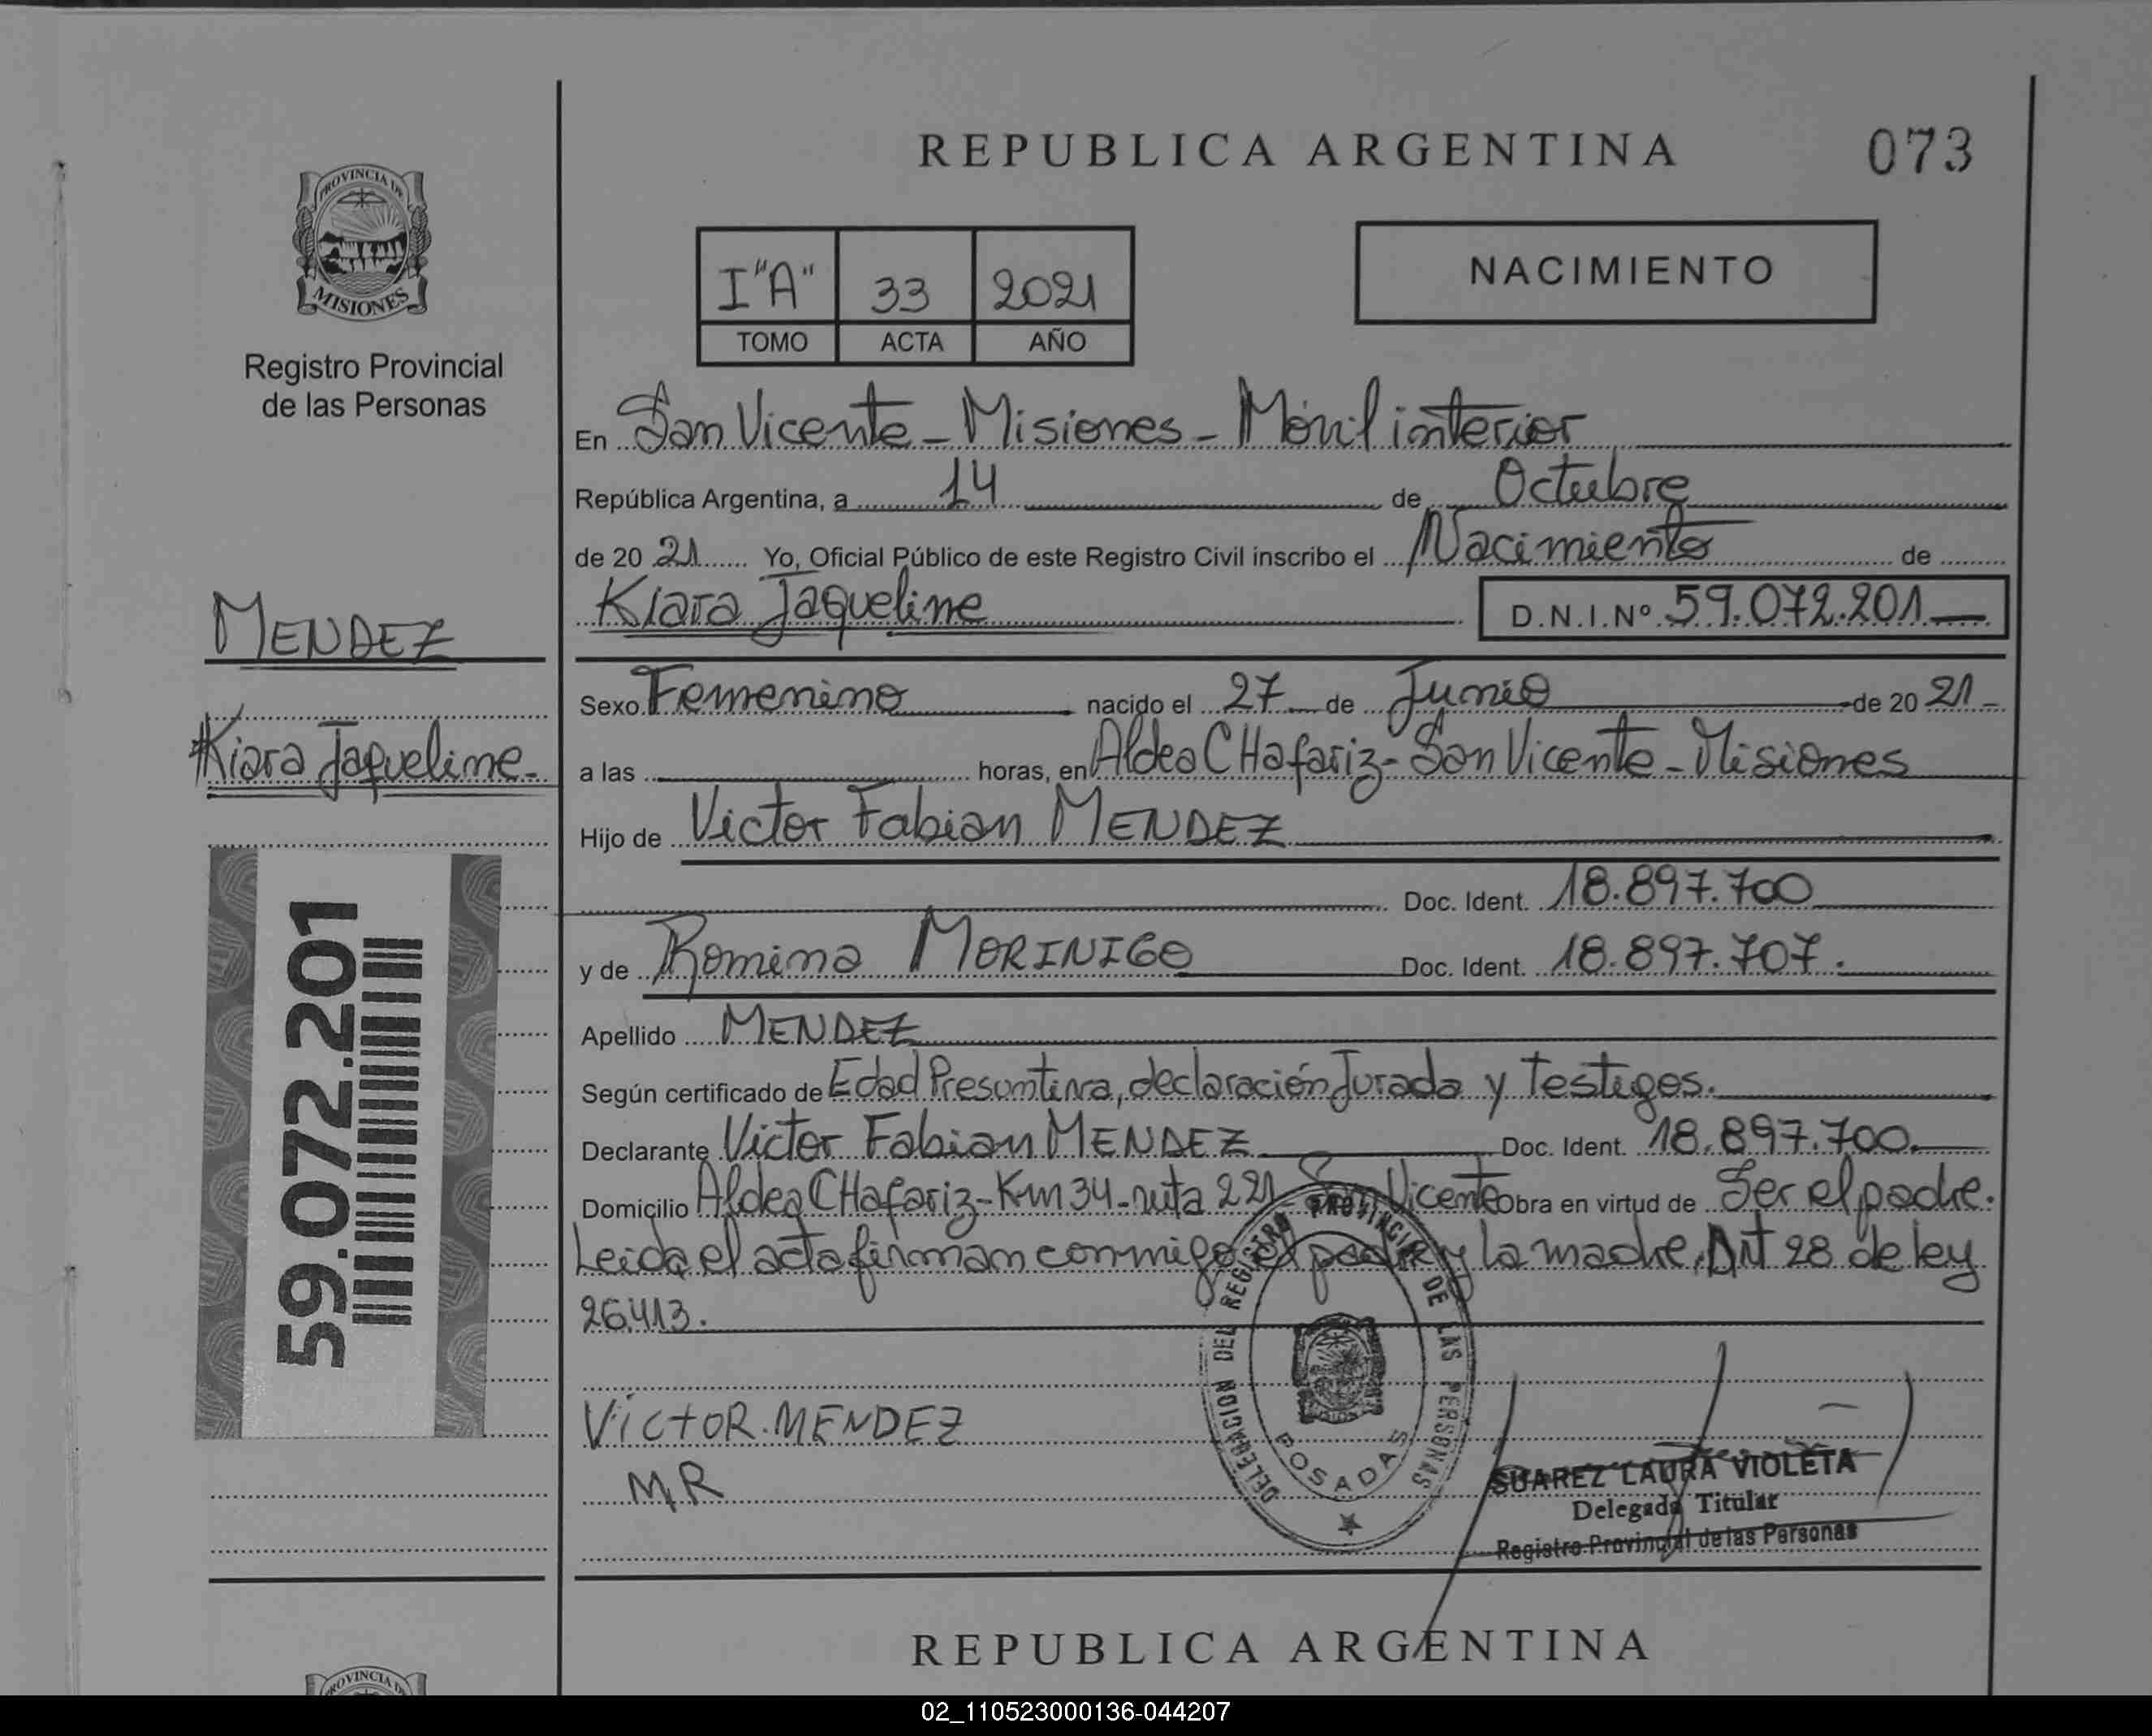 REPUBLICA ARGENTINA
073
PROVINCIA DE
MISIONES
Registro Provincial
de las Personas
I"A" 33 2021
TOMO ACTA AÑO
NACIMIENTO
En San Vicente - Misiones - Móvil interior
República Argentina, a 14 de Octubre
de 20 21 Yo, Oficial Público de este Registro Civil inscribo el Nacimiento de
Kiara Jaqueline D.N.I.Nº 59.072.201
MENDEZ
Kiara Jaqueline
59.072.201
Sexo Femenino nacido el 27 de Junio de 20 21
a las horas, en Aldea CHafariz - San Vicente - Misiones
Hijo de Victor Fabian MENDEZ
Doc. Ident. 18.897.700
y de Romina MORINIGO Doc. Ident. 18.897.707.
Apellido MENDEZ
Según certificado de Edad Presuntiva, declaración Jurada y Testigos.
Declarante Victor Fabian MENDEZ Doc. Ident. 18.897.700.
Domicilio Aldea CHafariz - Km 34 - ruta 221 San Vicente Obra en virtud de Ser el padre.
Leida el acta firman conmigo el padre y la madre, Art 28 de ley
26.413.
DELEGACION DEL REGISTRO PROVINCIAL DE LAS PERSONAS
POSADAS
VICTOR. MENDEZ
M R
SUAREZ LAURA VIOLETA
Delegada Titular
Registro Provincial de las Personas
REPUBLICA ARGENTINA
PROVINCIA DE
02_110523000136-044207